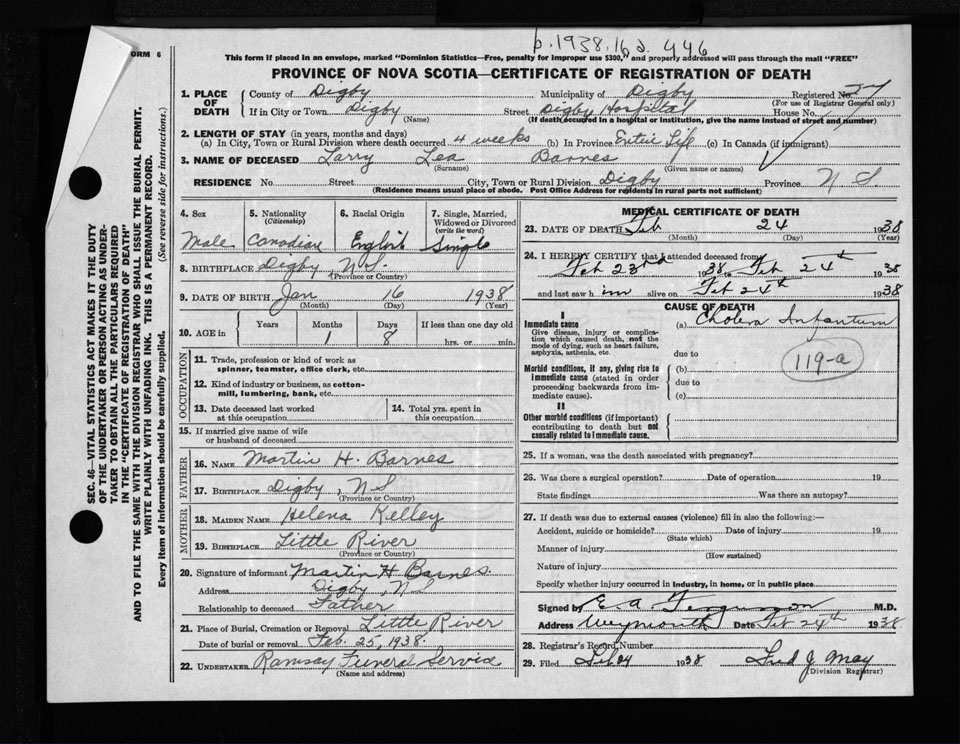 b. 1938.16 d. 446
ORM 6
This form if placed in an envelope, marked "Dominion Statistics—Free, penalty for improper use $300," and properly addressed will pass through the mail "FREE"
PROVINCE OF NOVA SCOTIA—CERTIFICATE OF REGISTRATION OF DEATH
1. PLACE OF DEATH
County of Digby Municipality of Digby Registered No.
(For use of Registrar General only)
If in City or Town Digby Street Digby Hospital House No.
(Name) (If death occurred in a hospital or institution, give the name instead of street and number)
2. LENGTH OF STAY (in years, months and days)
(a) In City, Town or Rural Division where death occurred 4 weeks (b) In Province Entire Life (c) In Canada (if immigrant)
3. NAME OF DECEASED Larry Lea Barnes
(Surname) (Given name or names)
RESIDENCE No. Street City, Town or Rural Division Digby Province N S.
(Residence means usual place of abode. Post Office Address for residents in rural parts not sufficient)
4. Sex 5. Nationality (Citizenship) 6. Racial Origin 7. Single, Married, Widowed or Divorced (write the word)
Male Canadian English Single
8. BIRTHPLACE Digby, N.S.
(Province or Country)
9. DATE OF BIRTH Jan 16 1938
(Month) (Day) (Year)
10. AGE in Years Months Days If less than one day old
1 8 hrs. or min.
OCCUPATION
11. Trade, profession or kind of work as
spinner, teamster, office clerk, etc.
12. Kind of industry or business, as cotton-
mill, lumbering, bank, etc.
13. Date deceased last worked
at this occupation
14. Total yrs. spent in
this occupation
15. If married give name of wife
or husband of deceased
FATHER
16. NAME Martin H. Barnes
17. BIRTHPLACE Digby, NS
(Province or Country)
MOTHER
18. MAIDEN NAME Helena Kelley
19. BIRTHPLACE Little River
(Province or Country)
20. Signature of informant Martin H Barnes.
Address Digby, NS
Relationship to deceased Father
21. Place of Burial, Cremation or Removal Little River
Date of burial or removal Feb. 25, 1938.
22. UNDERTAKER Ramsay Funeral Service
(Name and address)
MEDICAL CERTIFICATE OF DEATH
23. DATE OF DEATH Feb 24 1938
(Month) (Day) (Year)
24. I HEREBY CERTIFY that I attended deceased from
Feb 23rd 1938 to Feb 24th 1938
and last saw him alive on Feb 24th 1938
CAUSE OF DEATH
I
Immediate cause
Give disease, injury or complica-
tion which caused death, not the
mode of dying, such as heart failure,
asphyxia, asthenia, etc.
(a) Cholera Infantum
due to
119-a
Morbid conditions, if any, giving rise to
immediate cause (stated in order
proceeding backwards from im-
mediate cause).
(b)
due to
(c)
II
Other morbid conditions (if important)
contributing to death but not
causally related to immediate cause.
25. If a woman, was the death associated with pregnancy?
26. Was there a surgical operation? Date of operation 19
State findings Was there an autopsy?
27. If death was due to external causes (violence) fill in also the following:—
Accident, suicide or homicide? Date of injury 19
(State which)
Manner of injury
(How sustained)
Nature of injury
Specify whether injury occurred in industry, in home, or in public place
Signed by E A Ferguson M.D.
Address Weymouth Date Feb 24th 1938
28. Registrar's Record Number
29. Filed Feb 24 1938 Fred J. May
(Division Registrar)
SEC. 46—VITAL STATISTICS ACT MAKES IT THE DUTY
OF THE UNDERTAKER OR PERSON ACTING AS UNDER-
TAKER TO OBTAIN ALL THE PARTICULARS REQUIRED
IN THE "CERTIFICATE OF REGISTRATION OF DEATH"
AND TO FILE THE SAME WITH THE DIVISION REGISTRAR WHO SHALL ISSUE THE BURIAL PERMIT.
WRITE PLAINLY WITH UNFADING INK. THIS IS A PERMANENT RECORD.
Every item of information should be carefully supplied. (See reverse side for instructions.)